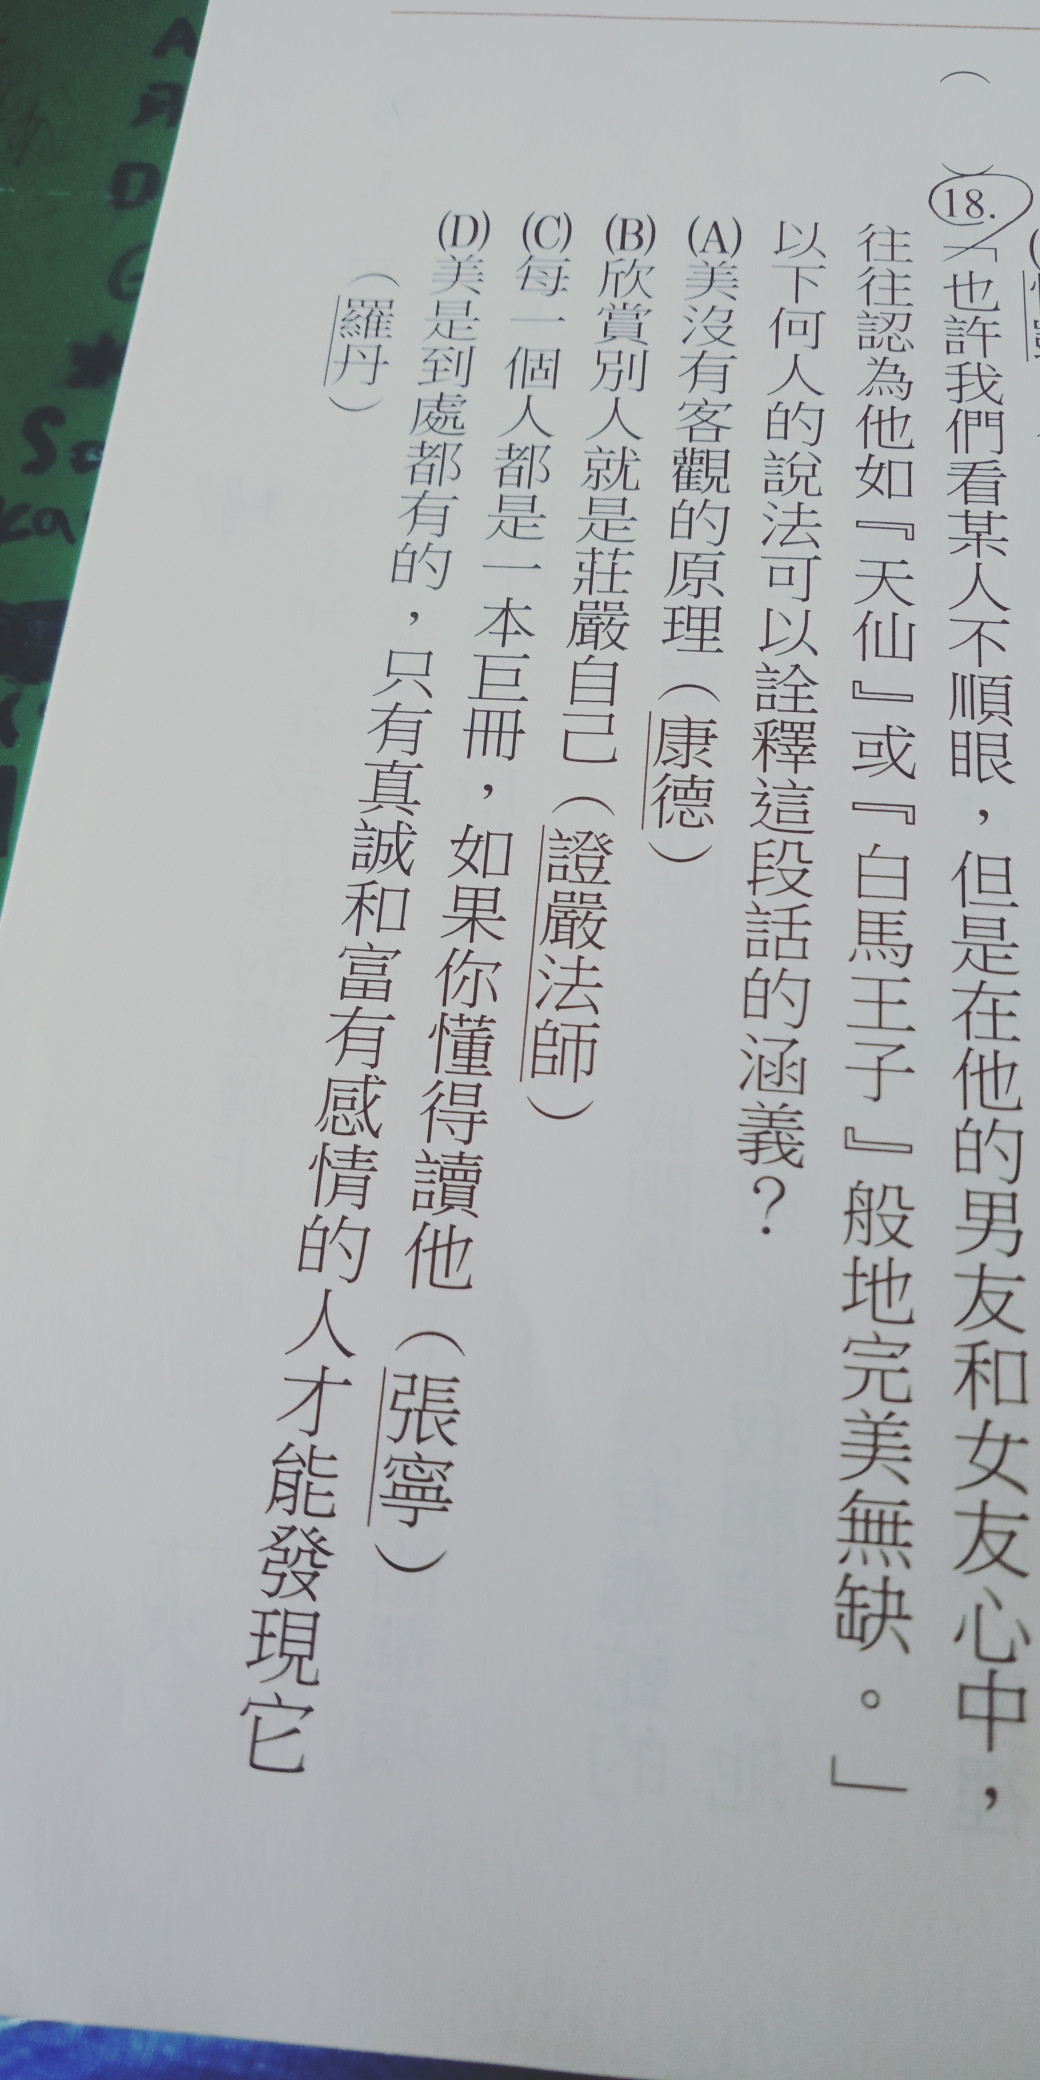 ( )18.「也許我們看某人不順眼，但是在他的男友和女友心中，
往往認為他如『天仙』或『白馬王子』般地完美無缺。」
以下何人的說法可以詮釋這段話的涵義？
(A)美沒有客觀的原理（康德）
(B)欣賞別人就是莊嚴自己（證嚴法師）
(C)每一個人都是一本巨冊，如果你懂得讀他（張寧）
(D)美是到處都有的，只有真誠和富有感情的人才能發現它
（羅丹）
A
D
G
So
ka